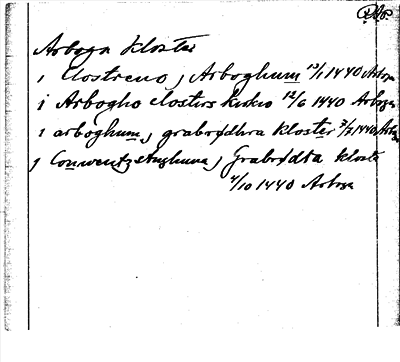 Arboga kloster
i Clostreno j Arboghum 13/1 1440 Arboga
i Arbogho closters kirkio 12/6 1440 Arboga
i arboghum j grabrødhra kloster 3/7 1440 Arboga
j Conwentzstughune j Grabrødra kloster
4/10 1440 Arboga